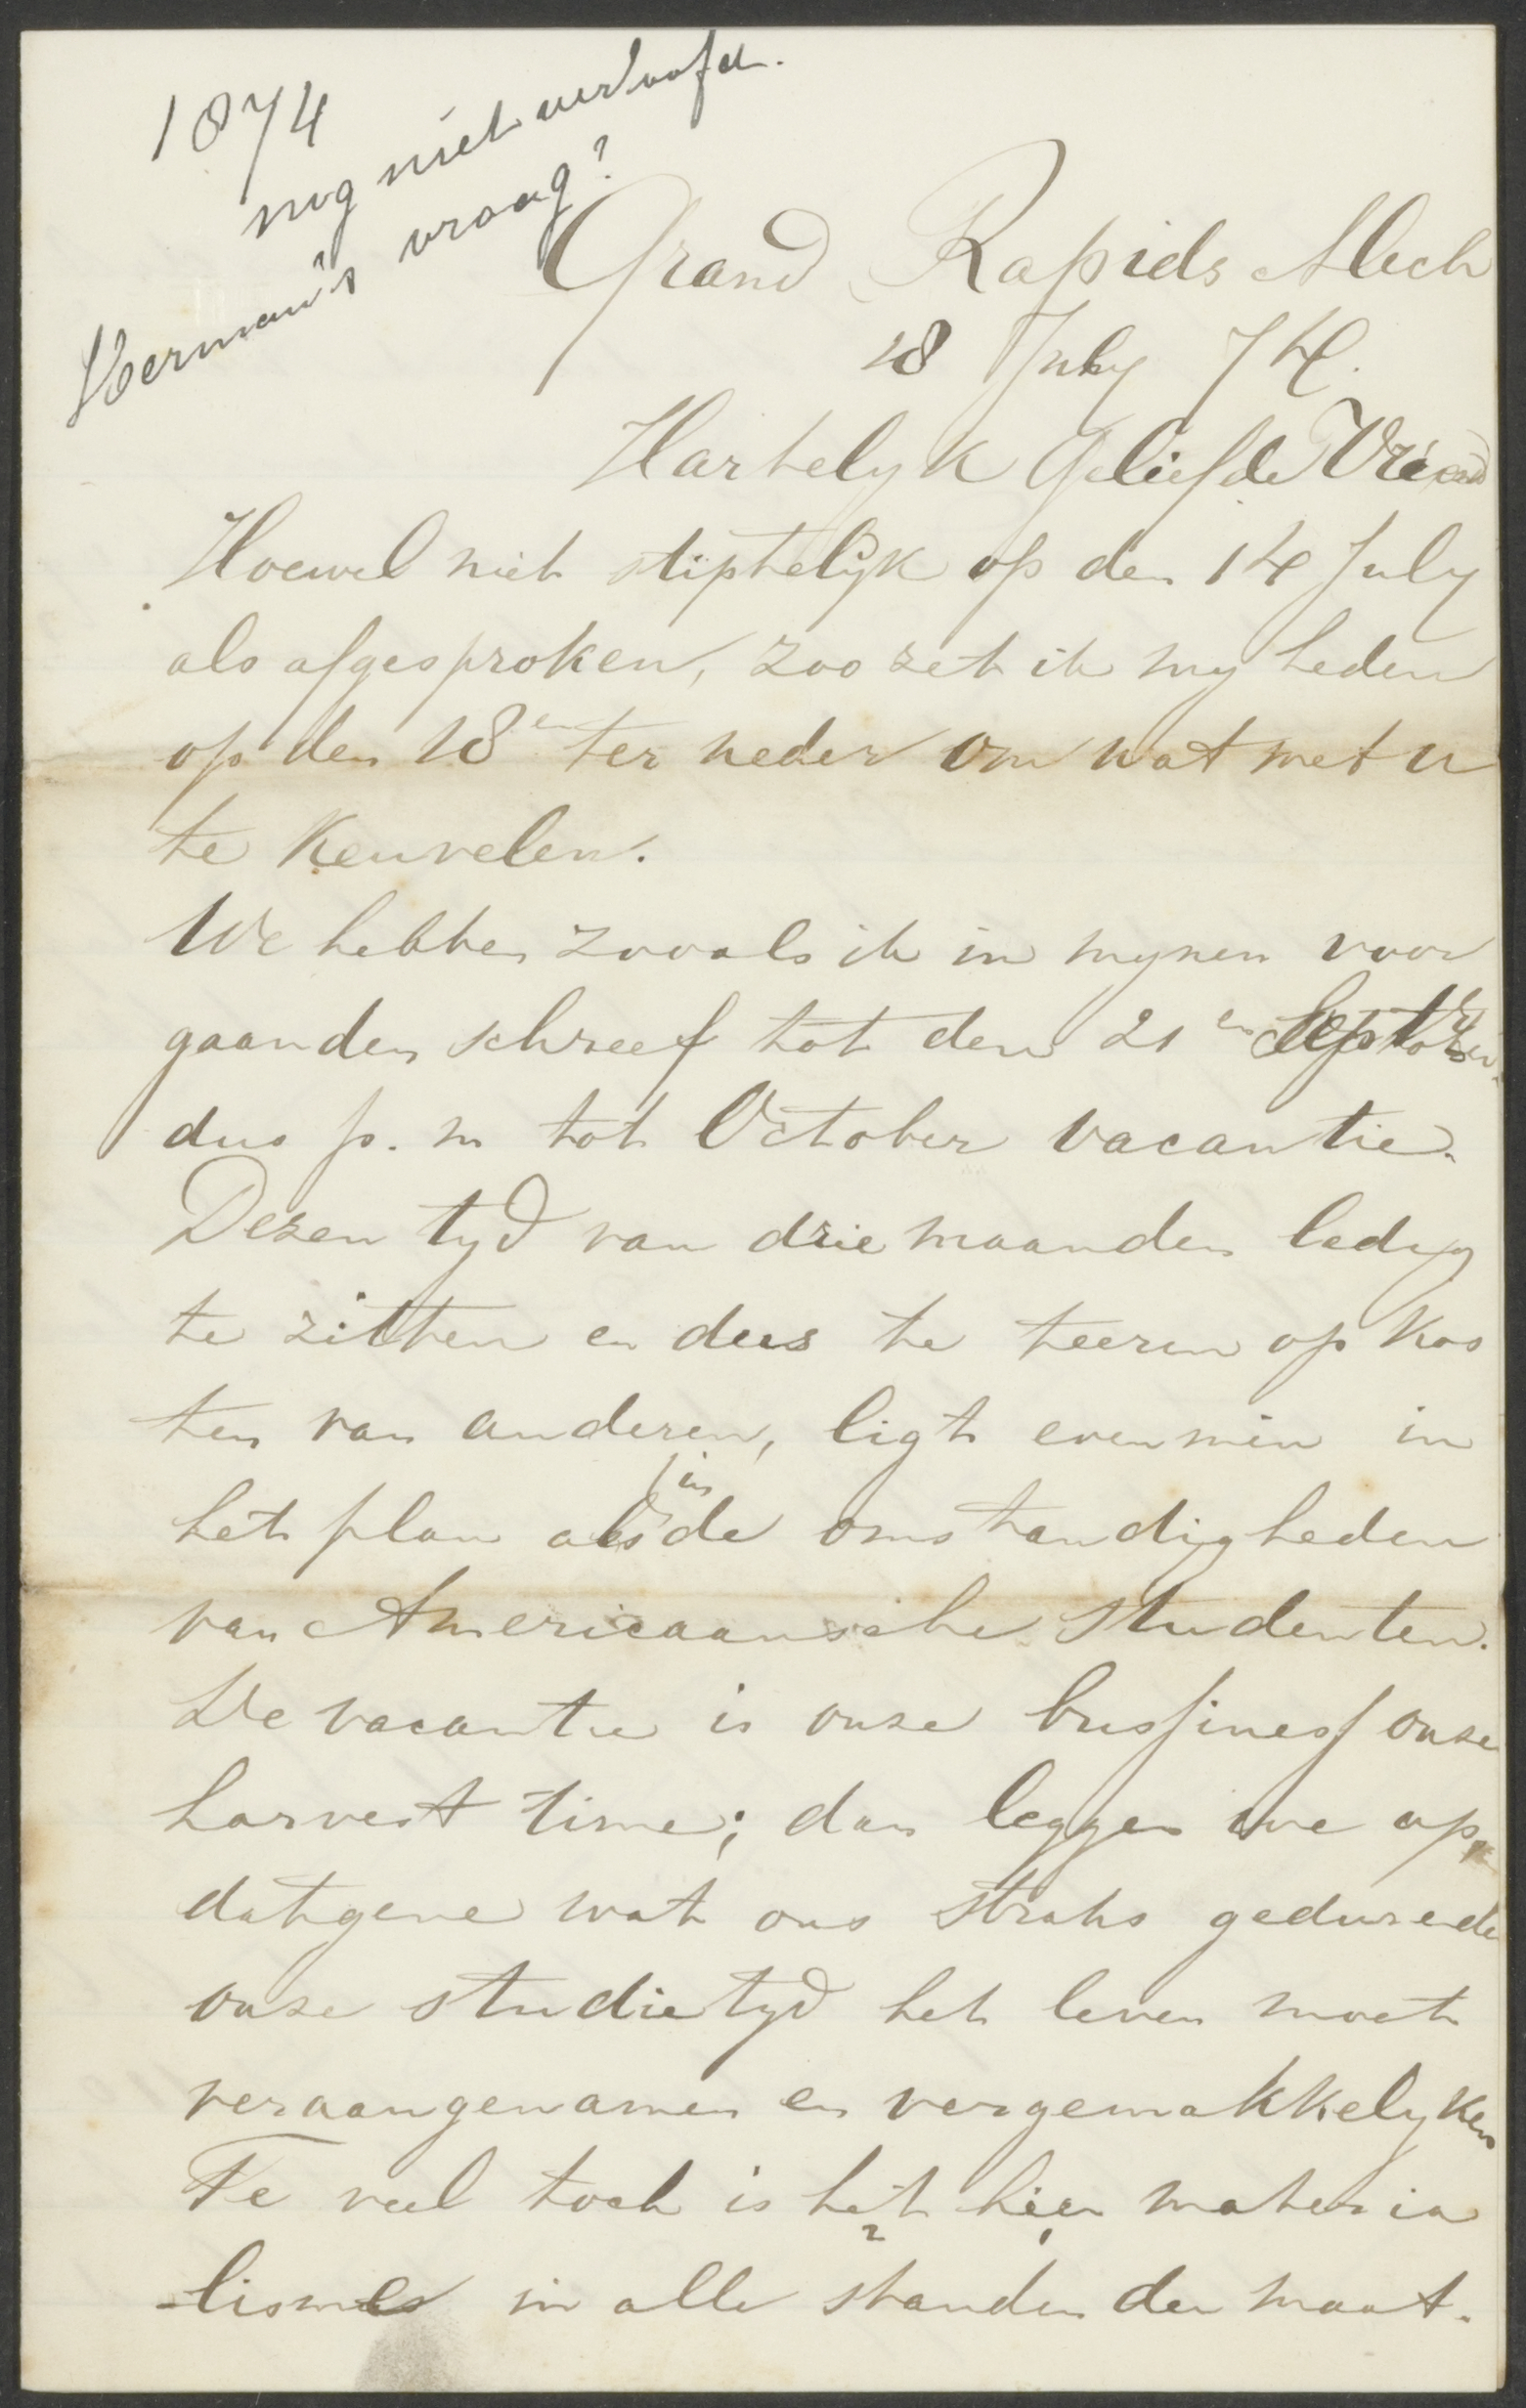 1874
nog niet verloofd.
Herman's vraag?
Grand Rapids Mich
18 July 74.
Hartelyk Geliefde Vriend
Hoewel niet stiptelijk op den 14 July
als afgesproken, zoo zet ik my heden
op den 18en ter neder om wat met u
te Keuvelen.
We hebben zooals ik in mynen voor
gaanden schreef tot den 21en
dus p. m tot October vacantie.
Dezen tyd van drie maanden ledig
te zitten en dus te teeren op Kos
ten van anderen, ligt evenmin in
het plan als in de omstandigheden
van Americaansche Studenten.
De vacantie is onze bussiness onze
harvest time; dan leggen we op
datgene wat ons straks gedurende
onze studietyd het leven moet
veraangenamen en vergemakkelyken
Te veel toch is het hier materia
-lismes in alle standen der maat-